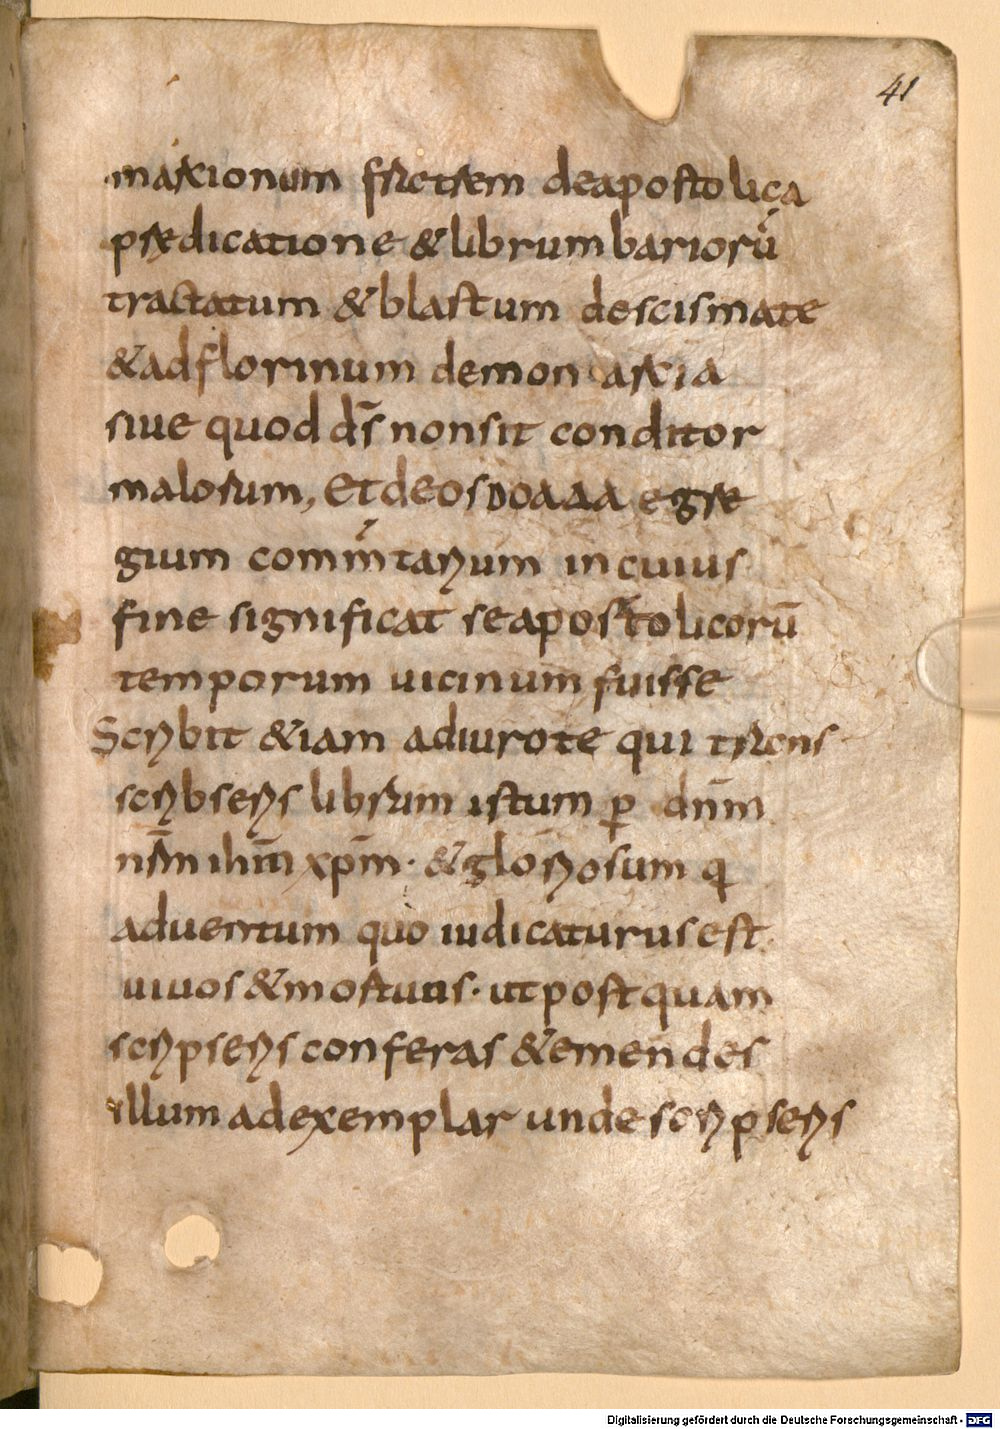 41
marcionum fratrem deapostolica
predicatione & librum bariorū
tractatum & blastum descismate
& adflorinum demonarcia
siue quod d̄s nonsit conditor
malorum, Et deosdoaaa egre
gium commntarium incuius
fine significat seapostolicorū
temporum uicinum fuisse
Scribit & iam adiurote qui trans
scribseris librum istum p dn̄m
nr̄m ih̄m xp̄m · & gloriosum q
aduentum quo iudicaturus est
uiuos & mortuus · ut postquam
scripseris conferas & emendes
illum ad exemplar unde scripseris
Digitalisierung gefördert durch die Deutsche Forschungsgemeinschaft - DFG